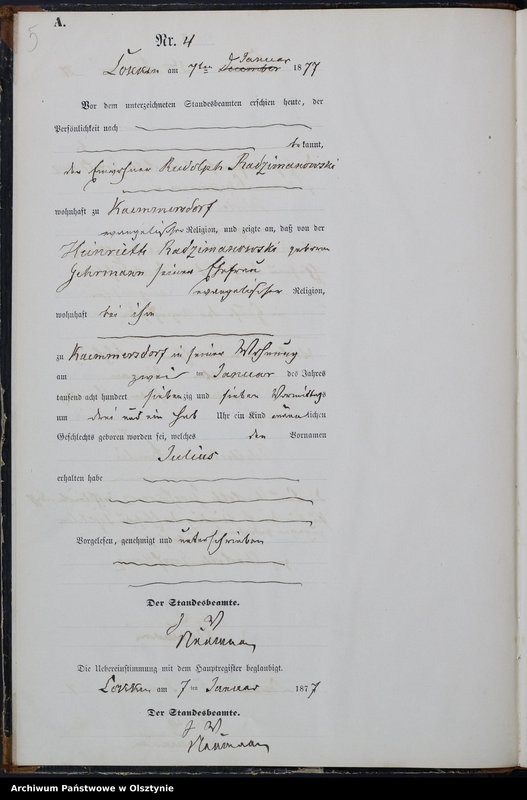 A.
5
Nr. 4
Lokken am 7ten Januar December 1877
Vor dem unterzeichneten Standesbeamten erschien heute, der
Persönlichkeit nach
bekannt,
der Rudolph Radzimanowski
wohnhaft zu Kaemmersdorf
evangelischer Religion, und zeigte an, daß von der
Heinriette Radzimanowski geborne
Gehrmann seiner Ehefrau
evangelischer Religion,
wohnhaft bei ihm
zu Kaemmersdorf in seiner Wohnung
am zwei ten Januar des Jahres
tausend acht hundert siebenzig und sieben Vormittags
um drei und ein halb Uhr ein Kind männlichen
Geschlechts geboren worden sei, welches den Vornamen
Julius
erhalten habe
Vorgelesen, genehmigt und unterschrieben
Der Standesbeamte.
J V
Naumann
Die Uebereinstimmung mit dem Hauptregister beglaubigt.
Lokken am 7ten Januar 1877
Der Standesbeamte.
J V
Naumann
Archiwum Państwowe w Olsztynie